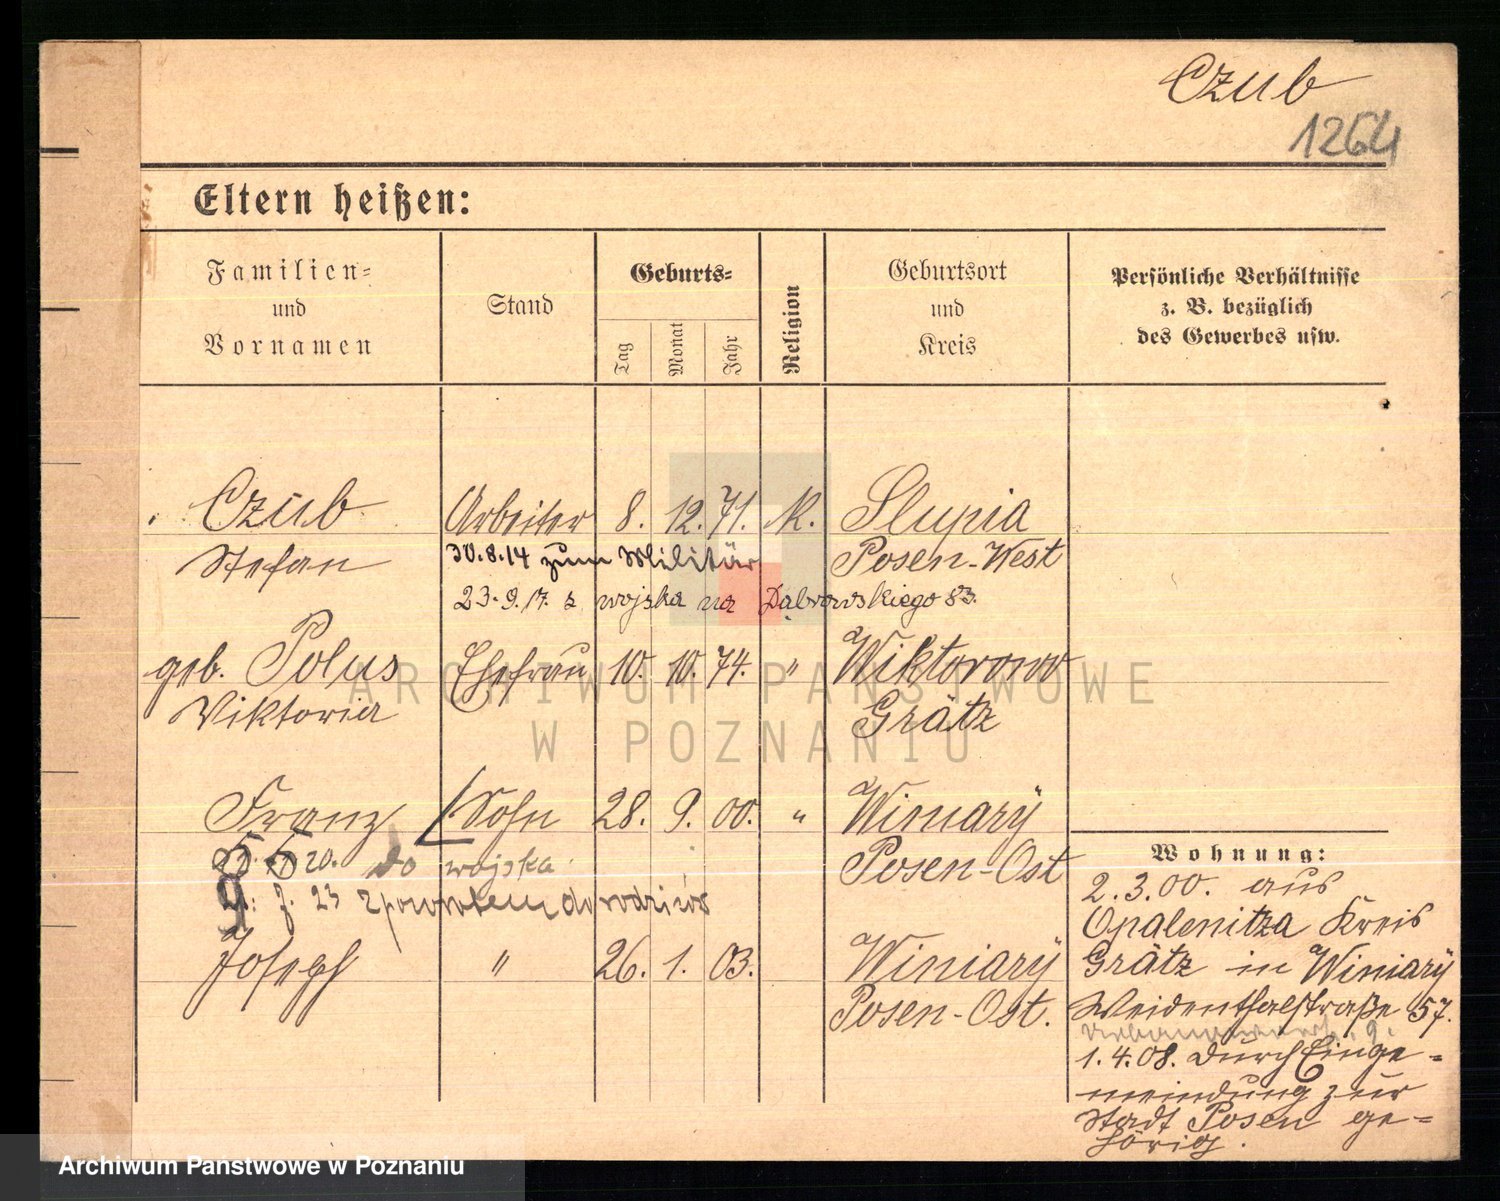 Czub
1264
Eltern heißen:
Familien=
und
Vornamen
Stand
Geburts=
Tag
Monat
Jahr
Religion
Geburtsort
und
Kreis
Persönliche Verhältnisse
z. B. bezüglich
des Gewerbes usw.
Czub Arbeiter 8. 12. 71. K. Slupia
Stefan 30.8.14 zum Militär Posen-West
23.9.17. z wojska na Dąbrowskiego 83.
geb. Polus Ehefrau 10. 10. 74. " Wiktorowo
Viktoria Grätz
Franz Sohn 28. 9. 00. " Winiary
20. do wojska Posen-Ost
7. 23 zpowrotem do rodziców
Joseph " 26. 1. 03. Winiary
Posen-Ost.
Wohnung:
2.3.00. aus
Opalenitza Kreis
Grätz in Winiary
Weidenthalstraße 57.
1.4.08. durch Einge-
meindung zur
Stadt Posen ge-
hörig.
ARCHIWUM PAŃSTWOWE
W POZNANIU
Archiwum Państwowe w Poznaniu